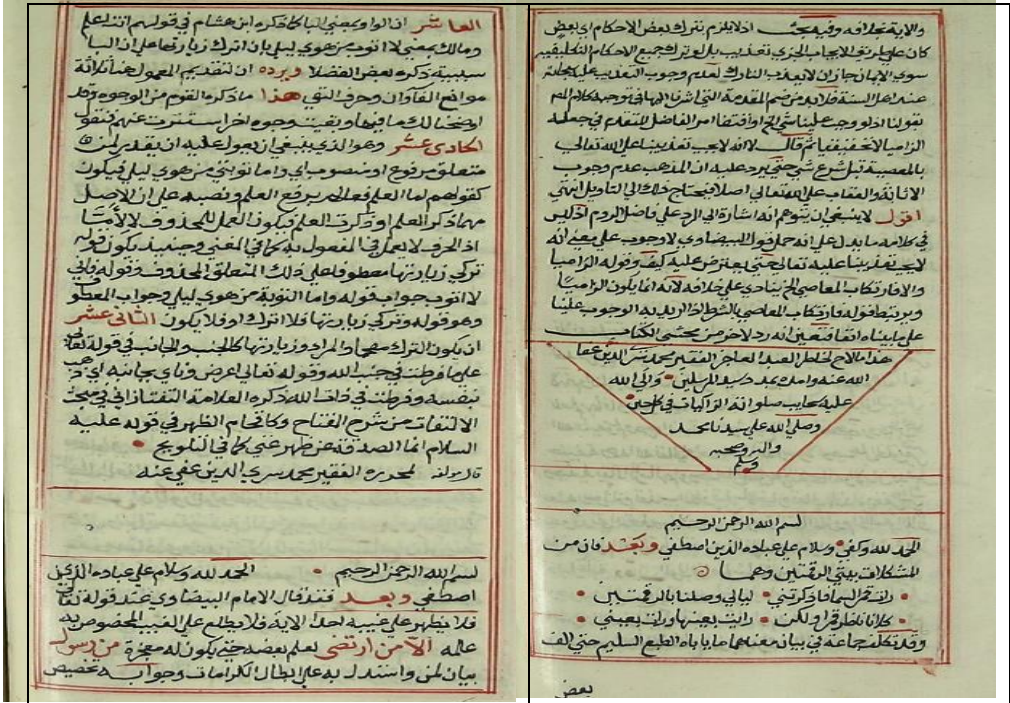 والآية بخلافه وفيه بحث اذ لا يلزم من ترك بعض الاحكام اي بعض
كان على طريق الايجاب الجزي تعذيب بل لو ترك جميع الاحكام التكليفية
سوى الايمان جاز ان لا يعذب التارك لعدم وجوب التعذيب عليه سبحانه
عند اهل السنة فلا بد من ضم المقدمة التي اشرنا اليها في توجيه كلام المص
بقولنا اذ لو وجب علينا شي الخ او اقتفا اثر الفاضل المتقدم في جعله
الزاميا لا تحقيقيا ثم قال لا انه لا يجب تعذيبنا على الله تعالى
بالمعصية قبل شرع شي حتى يرد عليه ان المذهب عدم وجوب
الاثابة والعقاب على الله تعالى اصلا فيحتاج ذلك الى التاويل انتهى
اقول لا ينبغي ان يتوهم انه اشارة الى الرد على فاضل الروم اذ ليس
في كلامه ما يدل على انه حمل قول البيضاوي لا وجوب على معنى انه
لا يجب تعذيبنا عليه تعالى حتى يعترض عليه كيف وقوله الزاميا
والا فارتكاب المعاصي الخ ينادي على خلافه لانه انما يكون الزاميا
ويرتبط قوله فارتكاب المعاصي بالشرط اذا اريد به الوجوب علينا
على ما بيناه انفا فتعين انه رد لاخر من محشي الكتاب
هذا ما لاح لخاطر العبد العاجز الفقير محمد سري الدين عفا
الله عنه وامده بمدد سيد المرسلين والى الله
عليه سحايب صلواته الزاكيات في كل حين
وصلى الله على سيدنا محمد
واله وصحبه
وسلم
بسم الله الرحمن الرحيم
الحمد لله وكفى وسلام على عباده الذين اصطفى وبعد فان من
المشكلات بيتي الرقمتين وهما
رات قمر السما فاذكرتني ليالي وصلنا بالرقمتين
كلانا ناظر قمرا ولكن رايت بعينها ورات بعيني
وقد تكلف جماعة في بيان معناهما ما ياباه الطبع السليم حتى الف
بعض
العاشر ان الواو بمعنى الباء كما ذكره ابن هشام في قولهم انت اعلم
ومالك بمعنى لا اتوب من هوى ليلى بان اترك زيارتها على ان البا
سببية ذكره بعض الفضلا ويرده ان لتقديم المعمول هنا ثلاثة
موانع الفا وان وحرف النفي هذا ما ذكره القوم من الوجوه وقد
اوضحنا لك ما فيها وبقيت وجوه اخر استترت عنهم فنقول
الحادي عشر وهو الذي ينبغي ان يعول عليه ان يقدر لمن
متعلق مرفوع او منصوب اي واما توبتي من هوى ليلى فيكون
كقولهم اما العلم فعالم برفع العلم ونصبه على ان الاصل
مهما ذكر العلم او ذكرت العلم فيكون العمل للمحذوف لا لامتا
اذ الحرف لا يعمل في المفعول به كما في المغني وحينئذ يكون قوله
تركي زيارتها معطوفا على ذلك المتعلق المحذوف وقوله فاني
لا اتوب جواب قوله واما التوبة من هوى ليلى وجواب المعطوف
وهو قوله وتركي زيارتها فلا اترك او فلا يكون الثاني عشر
ان يكون الترك مقحما والمراد وزيارتها كالجنب والجانب في قوله تعالى
على ما فرطت في جنب الله وقوله تعالى اعرض وناى بجانبه اي ذهب
بنفسه وفرطت في ذات الله ذكره العلامة التفتازاني في مبحث
الالتفات من شرح المفتاح وكاقحام الظهر في قوله عليه
السلام انما الصدقة عن ظهر غنى كما في التلويح
قال مولفه لمحرره الفقير محمد سري الدين عفي عنه
بسم الله الرحمن الرحيم الحمد لله وسلام على عباده الذين
اصطفى وبعد فقد قال الامام البيضاوي عند قوله تعالى
فلا يظهر على غيبه احدا الاية فلا يطلع على الغيب المخصوص به
علمه الا من ارتضى يعلم بعضه حتى يكون له معجزة من رسول
بيان لمن واستدل به على ابطال الكرامات وجوابه تخصيص